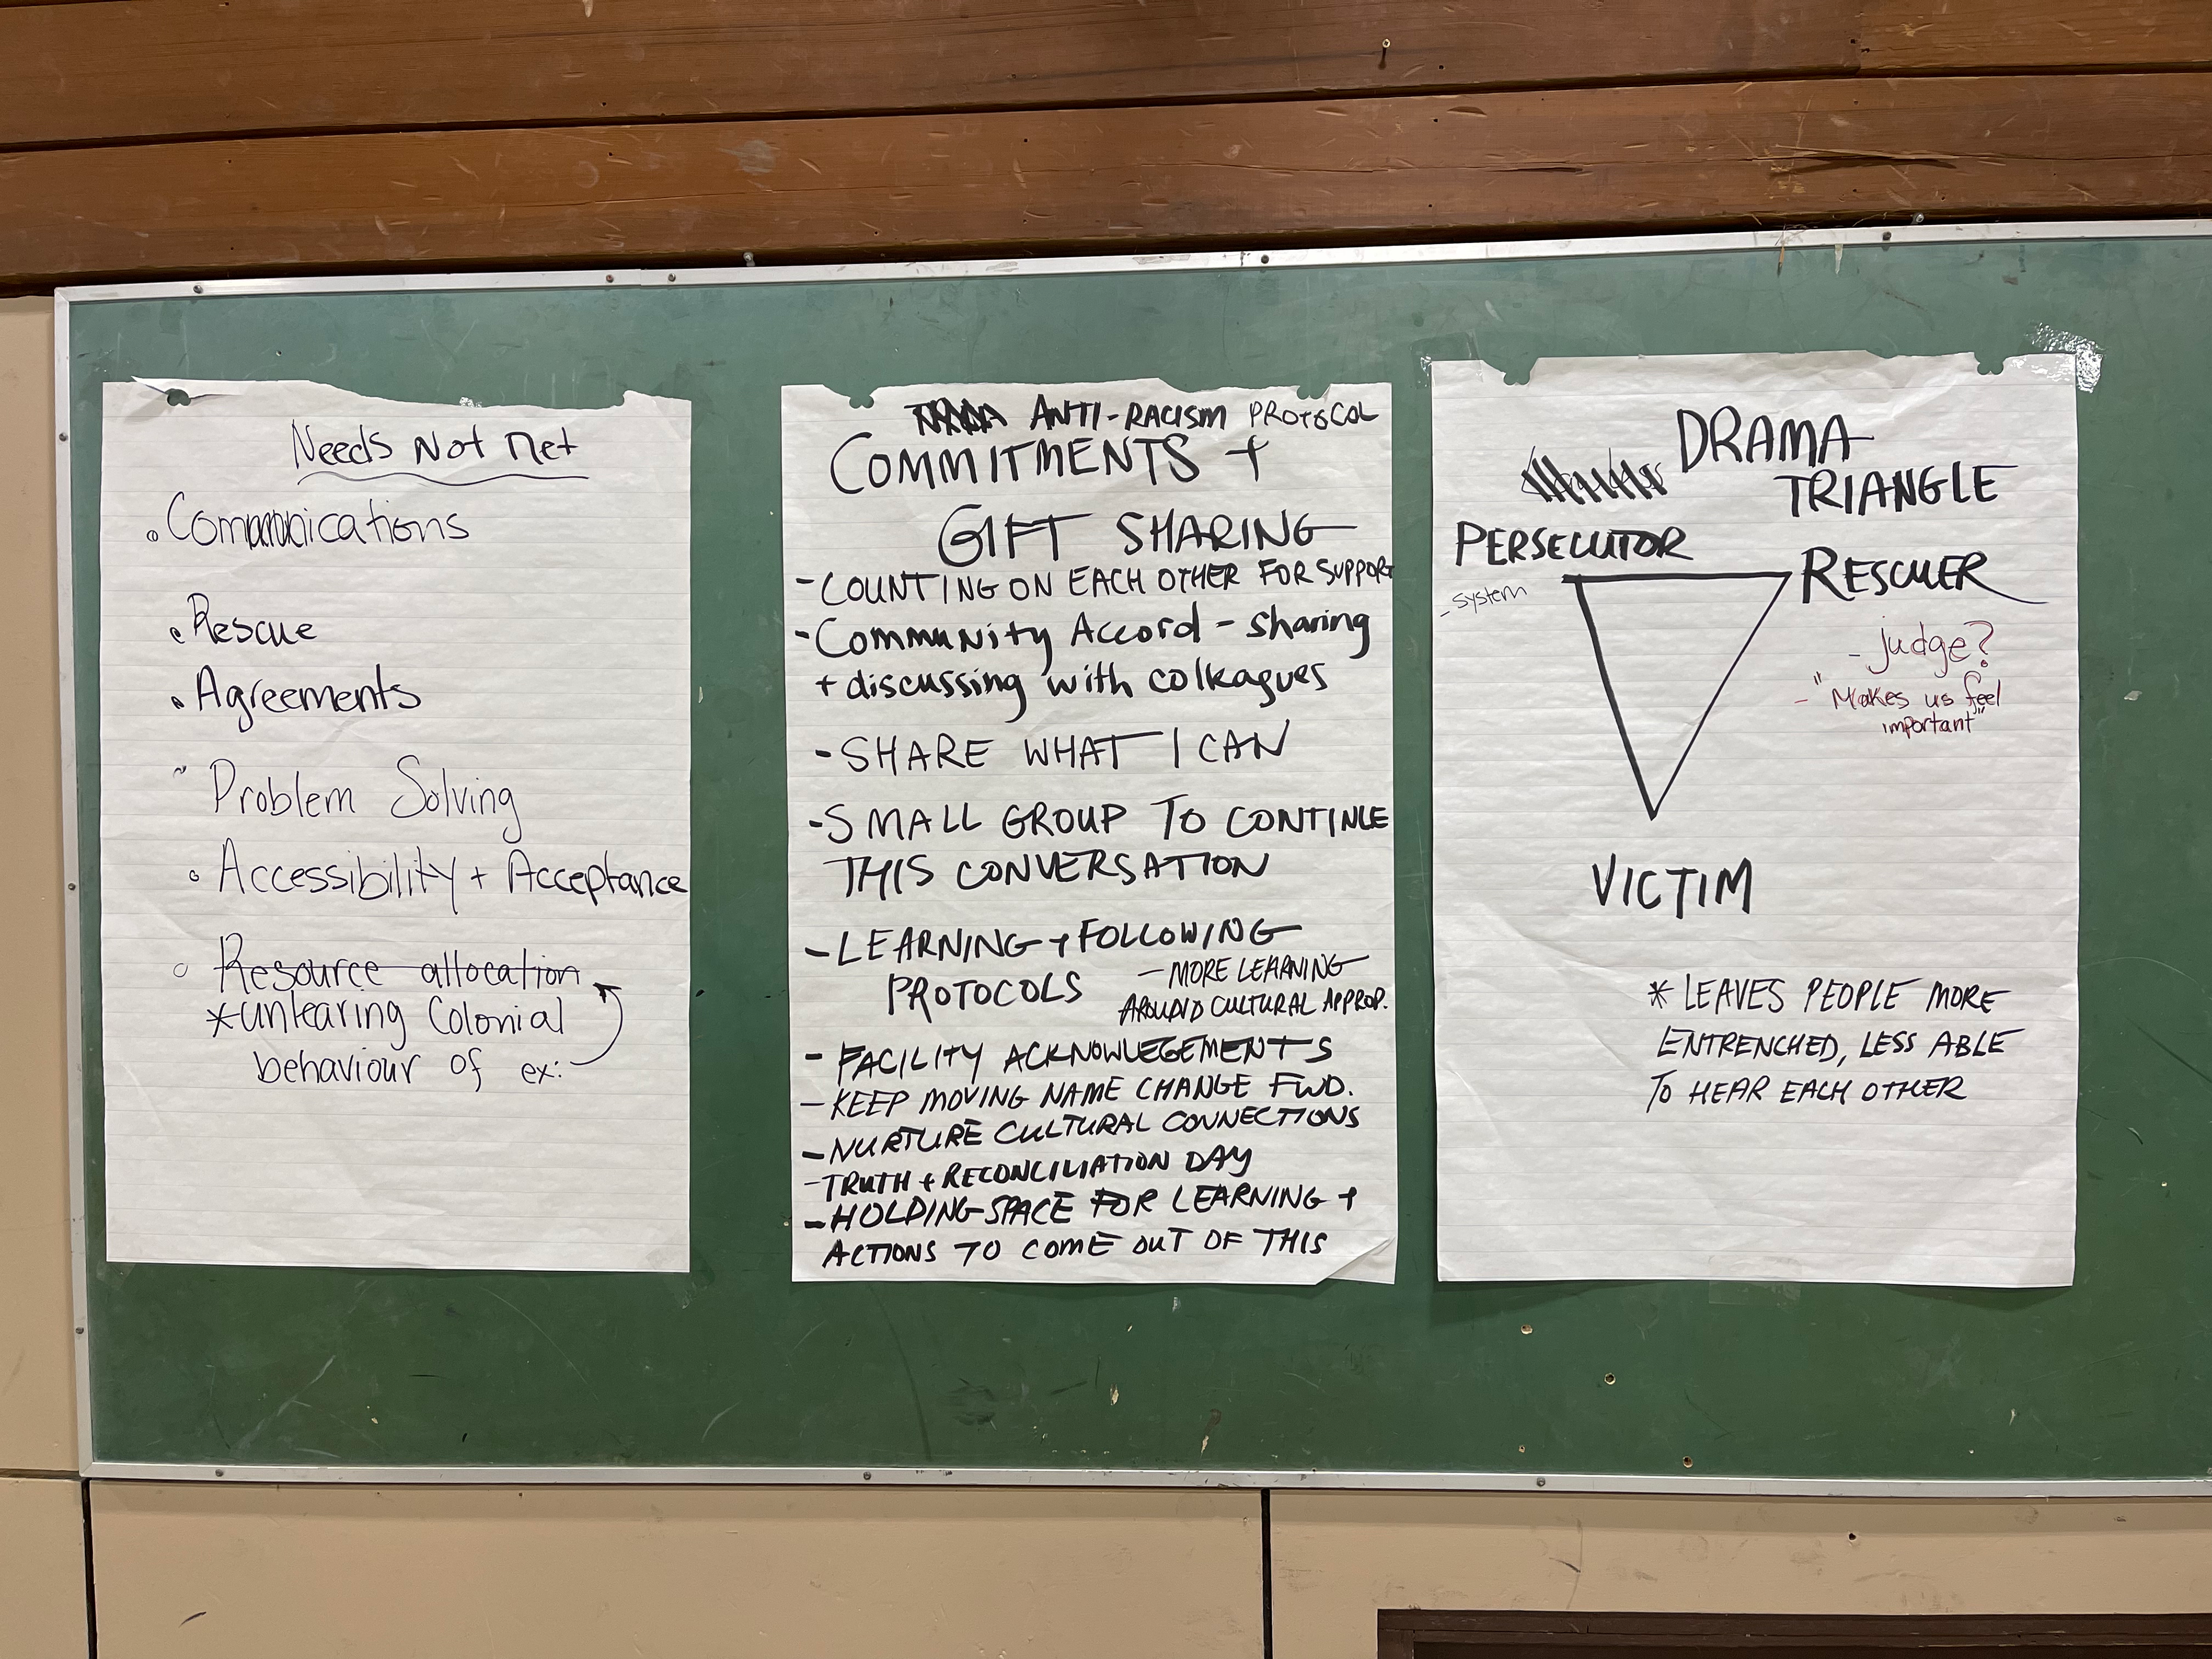 Needs Not Met
Communications
Rescue
Agreements
Problem Solving
Accessibility + Acceptance
Resource allocation
*unlearing Colonial
behaviour of ex:
ANTI-RACISM PROTOCOL
COMMITMENTS +
GIFT SHARING
- COUNTING ON EACH OTHER FOR SUPPORT
- Community Accord - sharing
+ discussing with colleagues
- SHARE WHAT I CAN
- SMALL GROUP TO CONTINUE
THIS CONVERSATION
- LEARNING + FOLLOWING
PROTOCOLS
- MORE LEARNING
AROUND CULTURAL APPROP.
- FACILITY ACKNOWLEGEMENTS
- KEEP MOVING NAME CHANGE FWD.
- NURTURE CULTURAL CONNECTIONS
- TRUTH + RECONCILIATION DAY
- HOLDING SPACE FOR LEARNING +
ACTIONS TO COME OUT OF THIS
DRAMA
TRIANGLE
PERSECUTOR
- system
RESCUER
- judge?
- "Makes us feel
important"
VICTIM
* LEAVES PEOPLE MORE
ENTRENCHED, LESS ABLE
TO HEAR EACH OTHER